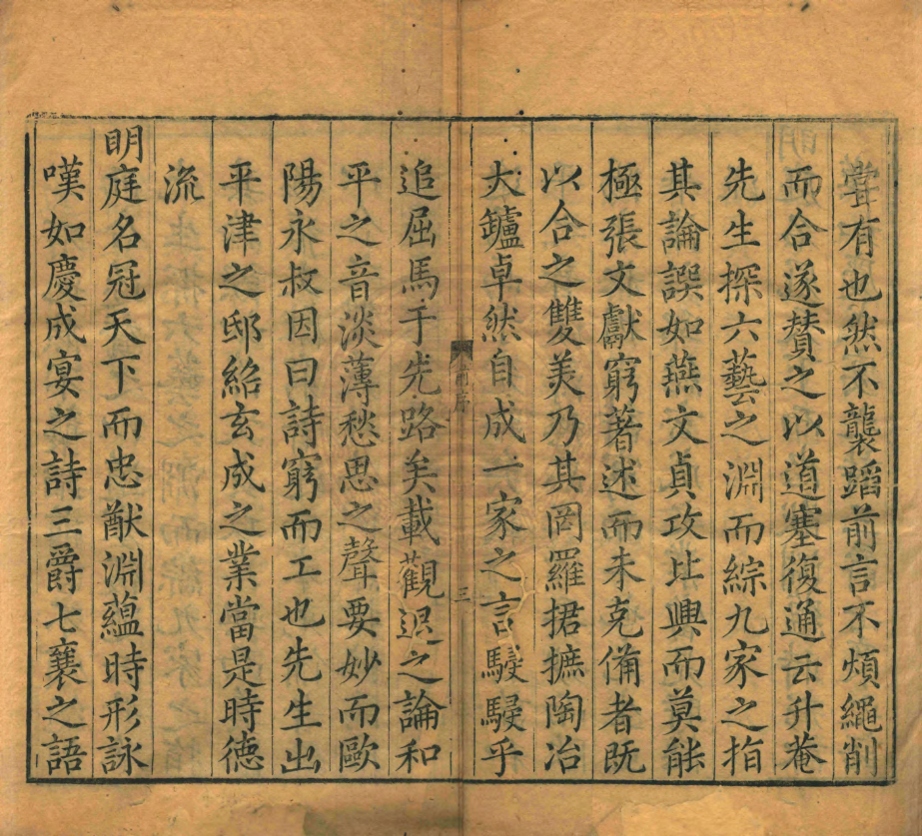 嘗有也然不襲蹈前言不煩繩削
而合遂贊之以道塞復通云升菴
先生探六藝之淵而綜九家之指
其論譔如燕文貞攻比興而莫能
極張文獻窮著述而未克備者既
以合之雙美乃其罔羅捃摭陶冶
大鑪卓然自成一家之言駸駸乎
前序
三
追屈馬于先路矣載觀退之論和
平之音淡薄愁思之聲要妙而歐
陽永叔因曰詩窮而工也先生出
平津之邸紹玄成之業當是時德
流
明庭名冠天下而忠猷淵蘊時形詠
嘆如慶成宴之詩三爵七襄之語